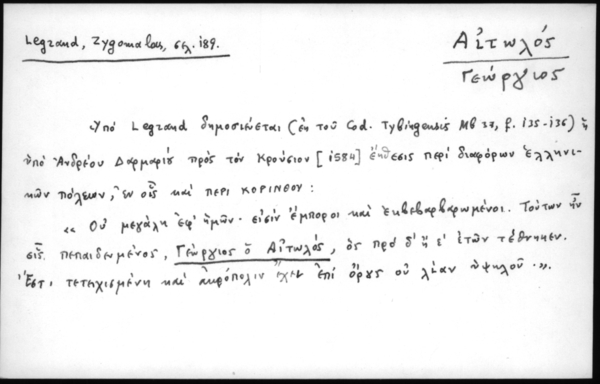 Legrand, Zygomalas, σελ. 189.
Αἰτωλός
Γεώργιος
Ὑπό Legrand δημοσιεύεται (ἐκ τοῦ Cod. Tybingensis Mb 37, f. 135-136) ἡ
ὑπό Ἀνδρέου Δαρμαρίου πρὸς τὸν Κρούσιον [1584] ἔκθεσις περί διαφόρων Ἑλληνι-
κῶν πόλεων, ἐν οἷς καὶ ΠΕΡΙ ΚΟΡΙΝΘΟΥ:
« Οὐ μεγάλη ἐφ' ἡμῶν· εἰσίν ἔμποροι καὶ ἐκβεβαρβαρωμένοι. Τούτων ἦν
εἷς πεπαιδευμένος, Γεώργιος ὁ Αἰτωλός, ὃς πρό δ' ἢ ε' ἐτῶν τέθνηκεν.
Ἔστι τετειχισμένη καὶ ἀκρόπολιν ἔχει ἐπί ὄρους οὐ λίαν ὑψηλοῦ·».